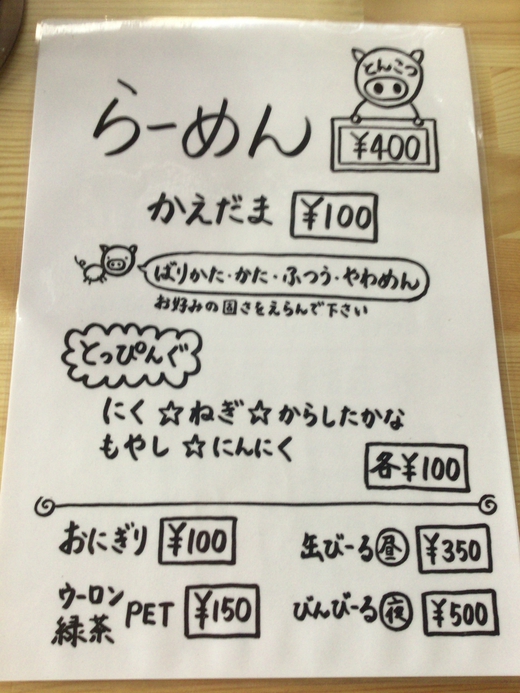 とんこつ
らーめん ¥400
かえだま ¥100
ばりかた・かた・ふつう・やわめん
お好みの固さをえらんで下さい
とっぴんぐ
にく☆ねぎ☆からしたかな
もやし☆にんにく
各¥100
おにぎり ¥100
缶びーる 昼 ¥350
ウーロン
緑茶 PET ¥150
びんびーる 夜 ¥500